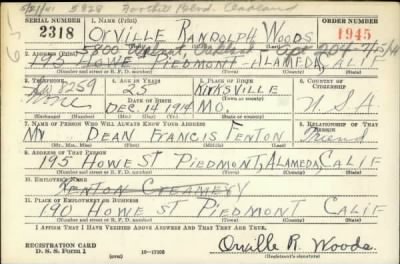 5/21/41 5828 Foothill Blvd. Oakland
SERIAL NUMBER 1. NAME (Print) ORDER NUMBER
2318 ORVILLE RANDOLPH WOODS 1945
(First) (Middle) (Last)
5800 Oakland - Apt 204 -
2. ADDRESS (Print)
195 HOWE PIEDMONT - ALAMEDA, CALIF
(Number and street or R. F. D. number) (Town) (County) (State)
3. TELEPHONE 4. AGE IN YEARS 5. PLACE OF BIRTH 6. COUNTRY OF CITIZENSHIP
1259 25 KIRKSVILLE
None DATE OF BIRTH (Town or county)
DEC 14 1914 MO. U.S.A.
(Exchange) (Number) (Mo.) (Day) (Yr.) (State or country)
7. NAME OF PERSON WHO WILL ALWAYS KNOW YOUR ADDRESS 8. RELATIONSHIP OF THAT PERSON
MR DEAN FRANCIS FENTON Friend
(Mr., Mrs., Miss) (First) (Middle) (Last)
9. ADDRESS OF THAT PERSON
195 HOWE ST PIEDMONT, ALAMEDA, CALIF
(Number and street or R. F. D. number) (Town) (County) (State)
10. EMPLOYER'S NAME
FENTON CREAMERY
11. PLACE OF EMPLOYMENT OR BUSINESS
190 HOWE ST PIEDMONT CALIF
(Number and street or R. F. D. number) (Town) (County) (State)
I AFFIRM THAT I HAVE VERIFIED ABOVE ANSWERS AND THAT THEY ARE TRUE.
REGISTRATION CARD
D. S. S. Form 1 (over) 16—17105 Orville R. Woods
(Registrant's signature)